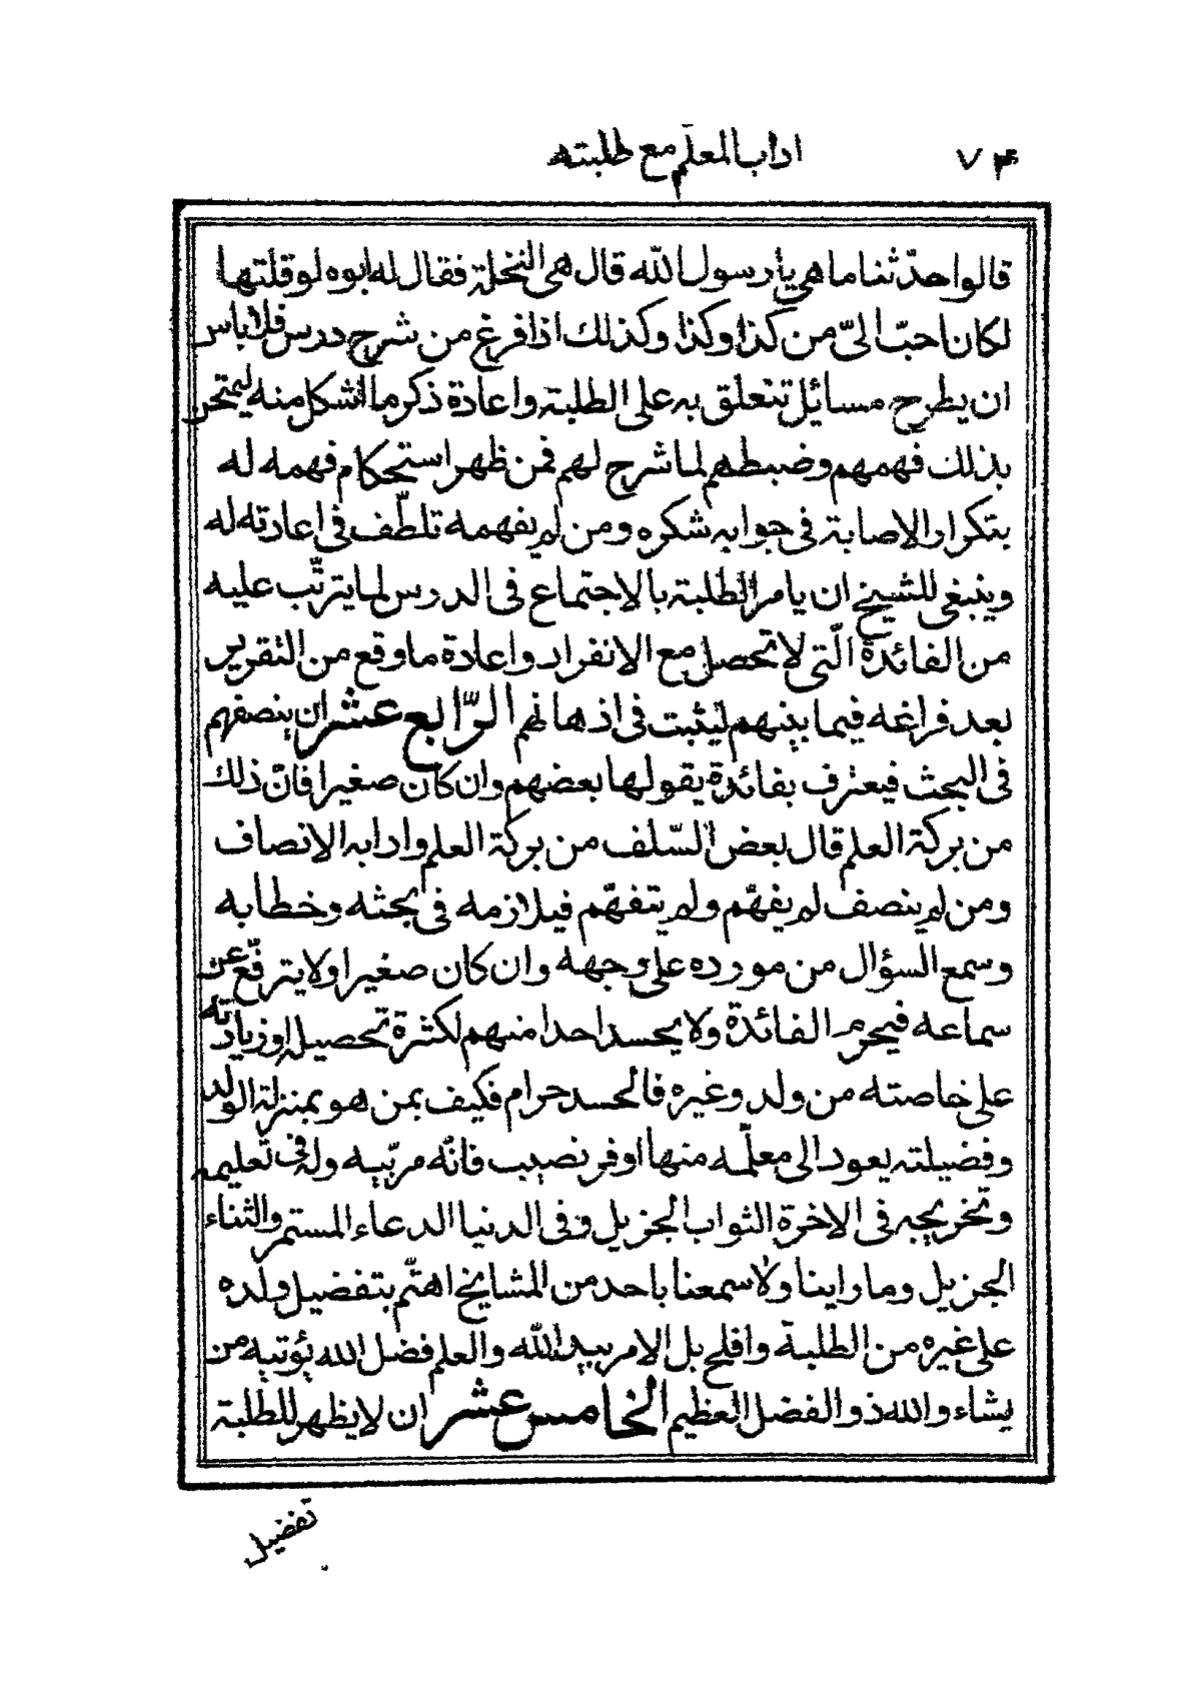 اداب المعلّم مع طلبته ٧٤
قالوا حدّثنا ما هي يا رسول الله قال هي النخلة فقال له ابوه لو قلتها
لكان احبّ اليّ من كذا وكذا وكذلك اذا فرغ من شرح درس فلا باس
ان يطرح مسائل تتعلق به على الطلبة واعادة ذكر ما اشكل منه ليمتحن
بذلك فهمهم وضبطهم لما شرح لهم فمن ظهر استحكام فهمه له
بتكرار الاصابة في جوابه شكره ومن لم يفهمه تلطّف في اعادته له
وينبغي للشيخ ان يامر الطلبة بالاجتماع في الدرس لما يترتّب عليه
من الفائدة الّتي لا تحصل مع الانفراد واعادة ما وقع من التقرير
بعد فراغه فيما بينهم ليثبت في اذهانهم الرّابع عشر ان ينصفهم
في البحث فيعترف بفائدة يقولها بعضهم وان كان صغيرا فانّ ذلك
من بركة العلم قال بعض السّلف من بركة العلم وادابه الانصاف
ومن لم ينصف لم يفهّم ولم يتفهّم فيلازمه في بحثه وخطابه
وسمع السؤال من مورده على وجهه وان كان صغيرا ولا يترفّع عن
سماعه فيحرم الفائدة ولا يحسد احدا منهم لكثرة تحصيله او زيادته
على خاصته من ولد وغيره فالحسد حرام فكيف بمن هو بمنزلة الولد
وفضيلته يعود الى معلّمه منها اوفر نصيب فانّه مربّيه وله في تعليمه
وتخريجه في الاخرة الثواب الجزيل وفي الدنيا الدعاء المستمر والثناء
الجزيل وما راينا ولا سمعنا باحد من المشايخ اهتّم بتفضيل ولده
على غيره من الطلبة وافلح بل الامر بيد الله والعلم فضل الله يؤتيه من
يشاء والله ذو الفضل العظيم الخامس عشر ان لا يظهر للطلبة
تفضيل